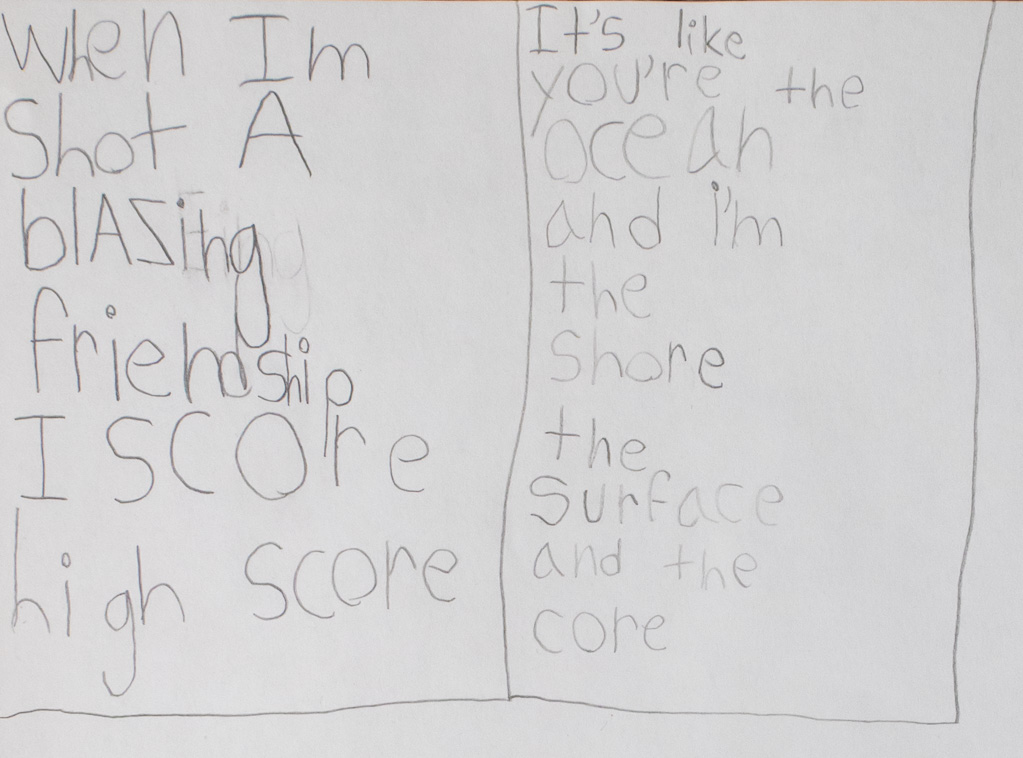 When Im
Shot A
blAZing
friendship
I SCOre
high score
It's like
you're the
ocean
and i'm
the
Shore
the
surface
and the
core